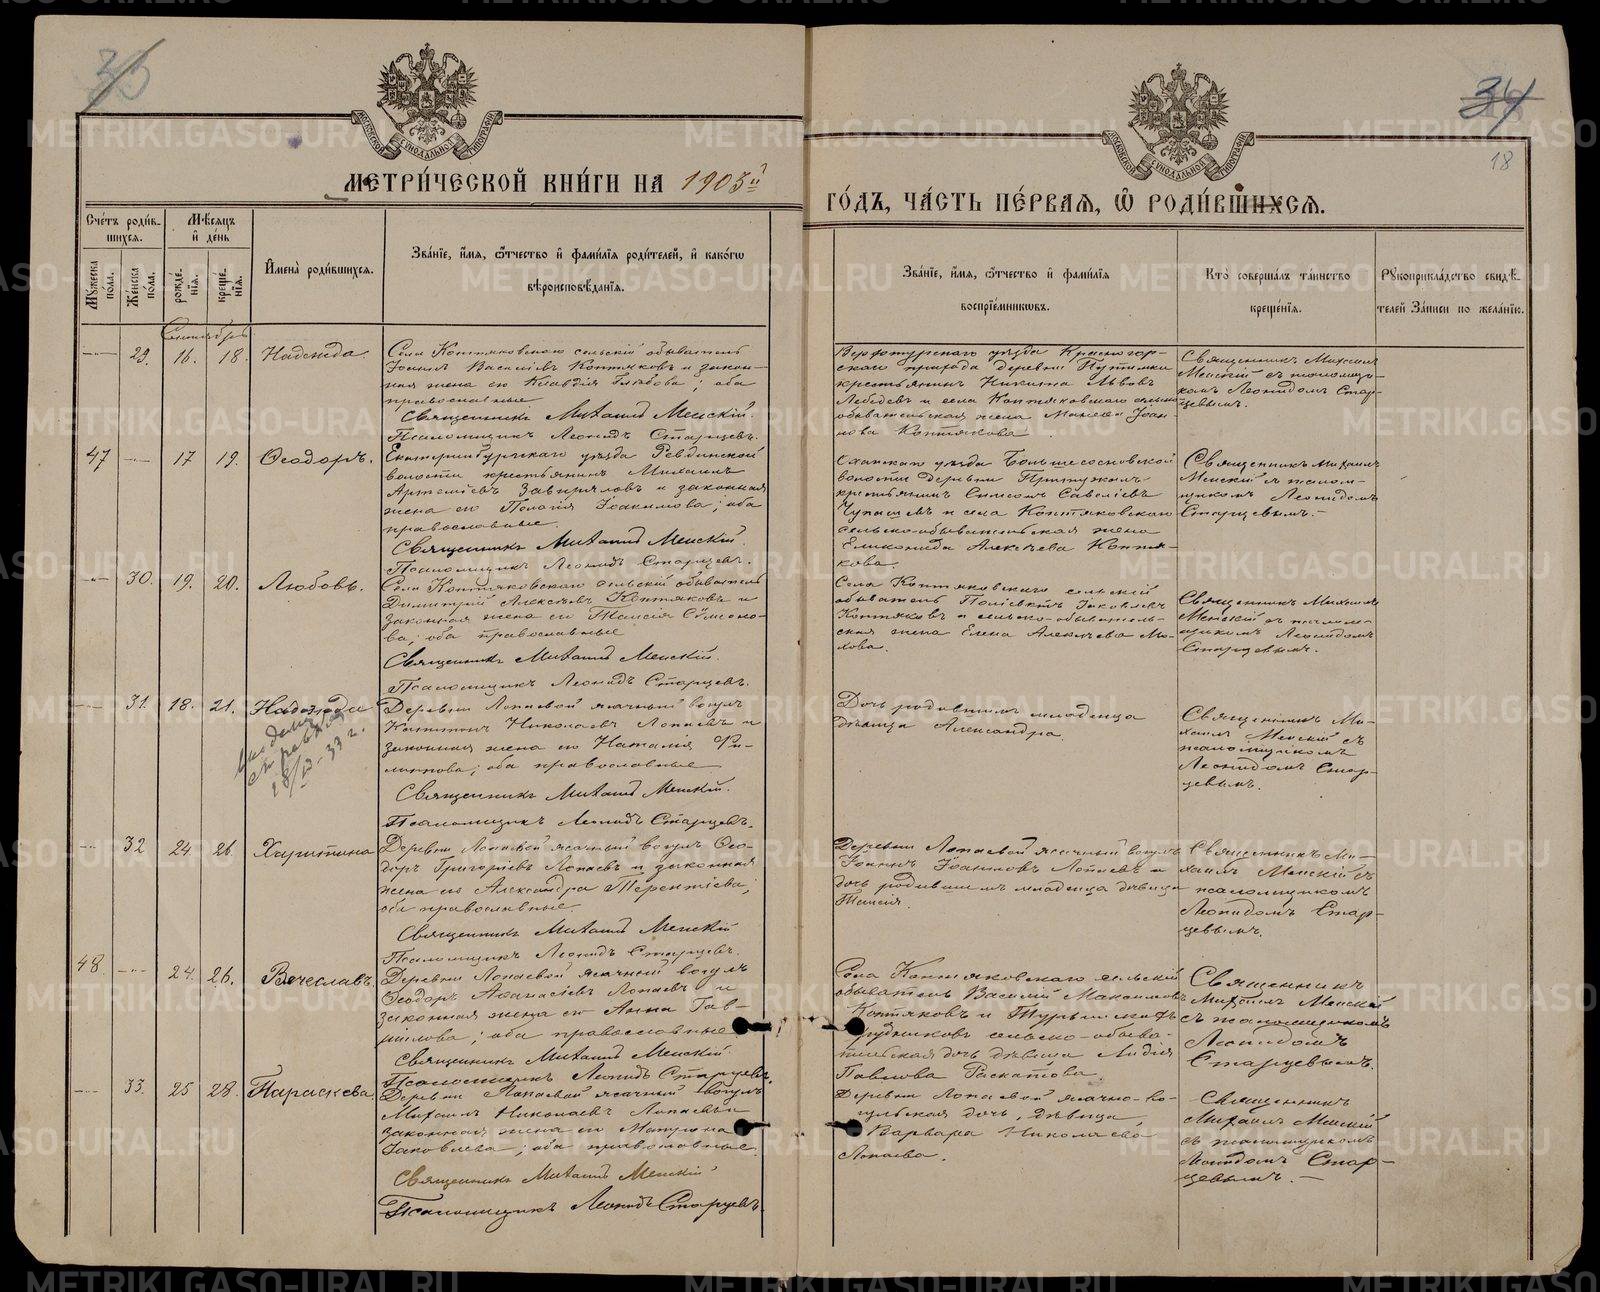 33
34
18
МОСКОВСКОЙ СѴНОДАЛЬНОЙ ТИПОГРАФІИ
МОСКОВСКОЙ СѴНОДАЛЬНОЙ ТИПОГРАФІИ
МЕТРИ́ЧЕСКОЙ КНИ́ГИ НА 1903й
ГО́ДЪ, ЧА́СТЬ ПЕ́РВАЯ, Ѽ РОДИ́ВШИХСЯ.
Сче́тъ роди́вшихся.
Мꙋ́жеска пола.
Же́нска по́ла.
Мѣ́сяцъ и де́нь
рожде́нїя.
креще́нїя.
И҆мена̀ роди́вшихся.
Зва́нїе, и҆́мя, ѻ҆́тчество и҆ фами́лїя роди́телей, и҆ како́гѡ
вѣроисповѣ́данїя.
Зва́нїе, и҆́мя, ѻ҆́тчество и҆ фами́лїя
воспрїе́мниковъ.
Кто̀ соверша́лъ та́инство
креще́нїя.
Рꙋкоприкла́дство свидѣ́телей за́писи по жела́нїю.
Сентябрь
29. 16. 18. Надежда.
Села Коптяковскаго сельскій обыватель
Іоаннъ Васильевъ Коптяковъ и закон-
ная жена его Клавдія Глѣбова; оба
православные
Священникъ Михаилъ Менскій.
Псаломщикъ Леонидъ Старцевъ.
Верхотурскаго уѣзда Красногор-
скаго прихода деревни Путимки
крестьянинъ Никита Львовъ
Лебедевъ и села Коптяковскаго сельско-
обывательская жена Іоан-
нова Коптякова
Священникъ Михаилъ
Менскій съ псаломщи-
комъ Леонидомъ Стар-
цевымъ.
47 17 19. Ѳеодоръ.
Екатеринбургскаго уѣзда Ревдинской
волости крестьянинъ Михаилъ
Артемьевъ и законная
жена его Пелагія Іоакимова; оба
православные.
Священникъ Михаилъ Менскій.
Псаломщикъ Леонидъ Старцевъ.
Оханскаго уѣзда Большесосновской
волости деревни
крестьянинъ Савельевъ
и села Коптяковскаго
сельско-обывательская жена
Еликонида Алексѣева Коптя-
кова.
Священникъ Михаилъ
Менскій съ псалом-
щикомъ Леонидомъ
Старцевымъ.
30. 19. 20. Любовь.
Села Коптяковскаго сельскій обыватель
Димитрій Алексѣевъ Коптяковъ и
законная жена его Таисія Симеоно-
ва; оба православные
Священникъ Михаилъ Менскій.
Псаломщикъ Леонидъ Старцевъ.
Села Коптяковскаго сельскій
обыватель Поліевктъ Іаковлевъ
Коптяковъ и сельско-обыватель-
ская жена Елена Алексѣева
Священникъ Михаилъ
Менскій съ псалом-
щикомъ Леонидомъ
Старцевымъ.
31. 18. 21. Надежда
Выдана
справка
33 г.
Деревни Лопаевой ясачный вогулъ
Капитонъ Николаевъ Лопаевъ и
законная жена его Наталія Фи-
липпова; оба православные
Священникъ Михаилъ Менскій.
Псаломщикъ Леонидъ Старцевъ.
Дочь родившихъ младенца
дѣвица Александра.
Священникъ Ми-
хаилъ Менскій съ
псаломщикомъ
Леонидомъ Стар-
цевымъ.
32 24. 26. Харитина
Деревни Лопаевой ясачный вогулъ Ѳео-
доръ Григорьевъ Лопаевъ и законная
жена его Александра Терентіева;
оба православные.
Священникъ Михаилъ Менскій
Псаломщикъ Леонидъ Старцевъ.
Деревни Лопаевой ясачный вогулъ
Іоаннъ Іоанновъ Лопаевъ и
дочь родившихъ младенца дѣвица
Таисія.
Священникъ Ми-
хаилъ Менскій съ
псаломщикомъ
Леонидомъ Стар-
цевымъ.
48. 24. 26. Вячеславъ
Деревни Лопаевой ясачный вогулъ
Ѳеодоръ Аѳанасіевъ Лопаевъ и
законная жена его Анна Гав-
ріилова; оба православные
Священникъ Михаилъ Менскій.
Псаломщикъ Леонидъ Старцевъ.
Села Коптяковскаго сельскій
обыватель Василій Максимовъ
Коптяковъ и Турьинскихъ
рудниковъ сельско-обыва-
тельская дочь дѣвица Лидія
Павлова Раскатова.
Священникъ
Михаилъ Менскій
съ псаломщикомъ
Леонидомъ
Старцевымъ.
33. 25 28. Параскева.
Деревни Лопаевой ясачный вогулъ
Михаилъ Николаевъ Лопаевъ и
законная жена его Матрона
Іаковлева; оба православные.
Священникъ Михаилъ Менскій
Псаломщикъ Леонидъ Старцевъ
Деревни Лопаевой ясачно-во-
гульская дочь, дѣвица
Варвара Николаева
Лопаева.
Священникъ
Михаилъ Менскій
съ псаломщикомъ
Леонидомъ Стар-
цевымъ.
METRIKI.GASO-URAL.RU